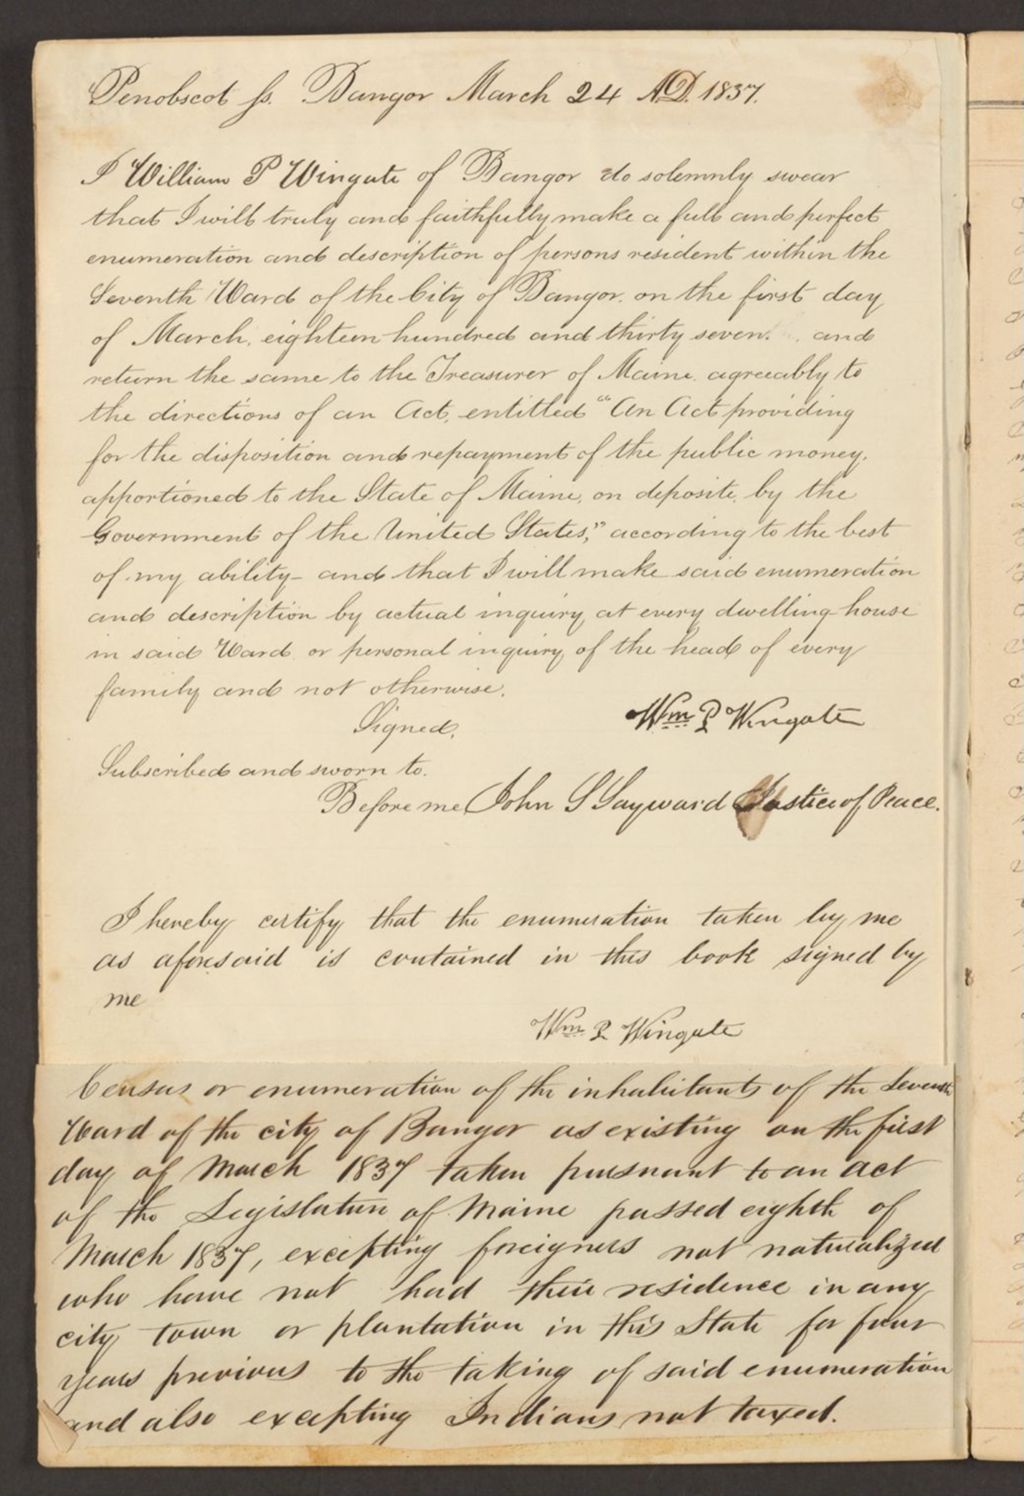 Penobscot ss. Bangor March 24 A.D. 1837.
I William P Wingate of Bangor do solemnly swear
that I will truly and faithfully make a full and perfect
enumeration and description of persons resident within the
Seventh Ward of the City of Bangor. on the first day
of March, eighteen hundred and thirty seven. and
return the same to the Treasurer of Maine, agreeably to
the directions of an Act, entitled "An Act providing
for the disposition and repayment of the public money,
apportioned to the State of Maine, on deposite, by the
Government of the United States," according to the best
of my ability - and that I will make said enumeration
and description by actual inquiry at every dwelling house
in said Ward, or personal inquiry of the head of every
family and not otherwise.
Signed, Wm P Wingate
Subscribed and sworn to.
Before me John S Sayward Justice of Peace.
I hereby certify that the enumeration taken by me
as aforesaid is contained in this book signed by
me
Wm P Wingate
Census or enumeration of the inhabitants of the Seventh
Ward of the city of Bangor as existing on the first
day of March 1837 taken pursuant to an act
of the Legislature of Maine passed eighth of
March 1837, excepting foreigners not naturalized
who have not had their residence in any
city town or plantation in this State for four
years previous to the taking of said enumeration
and also excepting Indians not taxed.